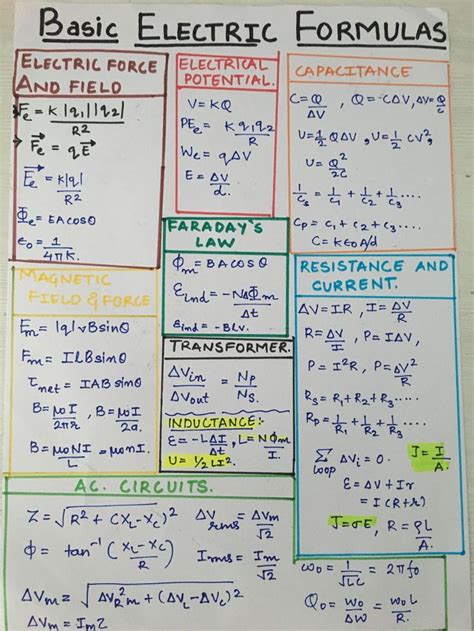 Basic ELECTRIC FORMULAS
ELECTRIC FORCE
AND FIELD
Fe = K|q1||q2| / R²
F⃗e = qE⃗
E⃗e = K|q| / R²
Φe = EA cosθ
ε0 = 1 / 4πK.
ELECTRICAL
POTENTIAL.
V = KQ
PEe = K q1q2 / R
Wc = qΔV
E = ΔV / d.
CAPACITANCE
C = Q/ΔV , Q = -CΔV, ΔV = Q/C
U = 1/2 QΔV , U = 1/2 CV²,
U = Q² / 2C
1/Cs = 1/C1 + 1/C2 + 1/C3 ....
Cp = C1 + C2 + C3 ....
C = Kε0A/d
FARADAY'S
LAW
Φm = BA cosθ
Eind = -NΔΦm / Δt
Eind = -BLV.
MAGNETIC
FIELD & FORCE
Fm = |q|vB sinθ
Fm = ILB sinθ
τnet = IAB sinθ
B = μ0I / 2πr , B = μ0I / 2a.
B = μ0NI / L = μ0nI.
TRANSFORMER.
ΔVin / ΔVout = Np / Ns.
INDUCTANCE:
E = -LΔI / Δt, L = NΦm / I.
U = 1/2 LI².
RESISTANCE AND
CURRENT.
ΔV = IR, I = ΔV / R
R = ΔV / I , P = IΔV,
P = I²R , P = ΔV² / R
Rs = R1 + R2 + R3 ....
Rp = 1/R1 + 1/R2 + 1/R3 + ....
Σ loop ΔVi = 0. J = I / A.
E = ΔV + Ir
= I(R+r)
J = σE, R = ρL / A.
AC. CIRCUITS.
Z = √R² + (XL - XC)² ΔVrms = ΔVm / √2
Φ = tan⁻¹ (XL - XC / R) Irms = Im / √2
ΔVm = √ΔVR²m + (ΔVL - ΔVC)²
ΔVm = ImZ
ω0 = 1 / √LC = 2πf0
Q0 = ω0 / ΔW = ω0L / R